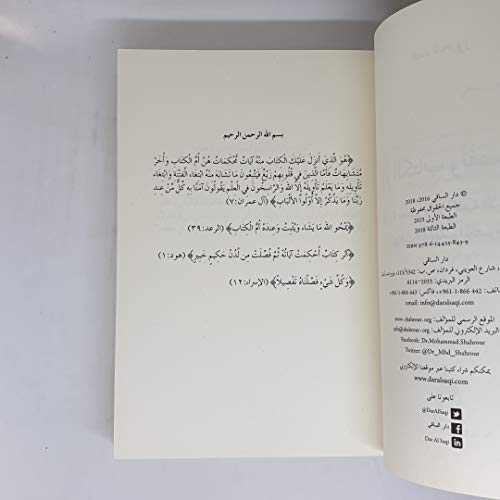 © دار الساقي 2016، 2018
جميع الحقوق محفوظة
الطبعة الأولى 2015
الطبعة الثالثة 2018
ISBN 978-6-14425-843-9
دار الساقي
شارع العويني، فردان، ص.ب: 113/5342
الرمز البريدي: 2033–6114
هاتف: 442 866-1-961+، فاكس:
email: info@daralsaqi.com
الموقع الرسمي للمؤلف: www.shahrour.org
البريد الإلكتروني للمؤلف:
Facebook: Dr.Mohammad.Shahrour
Twitter: @Dr_Mhd_Shahrour
يمكنكم شراء كتبنا عبر موقعنا الإلكتروني
www.daralsaqi.com
تابعونا على
@DarAlSaqi
دار الساقي
Dar Al Saqi
بسم الله الرحمن الرحيم
﴿هُوَ الَّذِي أَنزَلَ عَلَيْكَ الْكِتَابَ مِنْهُ آيَاتٌ مُّحْكَمَاتٌ هُنَّ أُمُّ الْكِتَابِ وَأُخَرُ
مُتَشَابِهَاتٌ فَأَمَّا الَّذِينَ فِي قُلُوبِهِمْ زَيْغٌ فَيَتَّبِعُونَ مَا تَشَابَهَ مِنْهُ ابْتِغَاءَ الْفِتْنَةِ وَابْتِغَاءَ
تَأْوِيلِهِ وَمَا يَعْلَمُ تَأْوِيلَهُ إِلَّا اللهُ وَالرَّاسِخُونَ فِي الْعِلْمِ يَقُولُونَ آمَنَّا بِهِ كُلٌّ مِّنْ عِندِ
رَبِّنَا وَمَا يَذَّكَّرُ إِلَّا أُوْلُوا الْأَلْبَابِ﴾ (آل عمران: ٧)
﴿يَمْحُو اللهُ مَا يَشَاءُ وَيُثْبِتُ وَعِندَهُ أُمُّ الْكِتَابِ﴾ (الرعد: ٣٩)
﴿الر كِتَابٌ أُحْكِمَتْ آيَاتُهُ ثُمَّ فُصِّلَتْ مِن لَّدُنْ حَكِيمٍ خَبِيرٍ﴾ (هود: ١)
﴿وَكُلَّ شَيْءٍ فَصَّلْنَاهُ تَفْصِيلاً﴾ (الإسراء: ١٢)